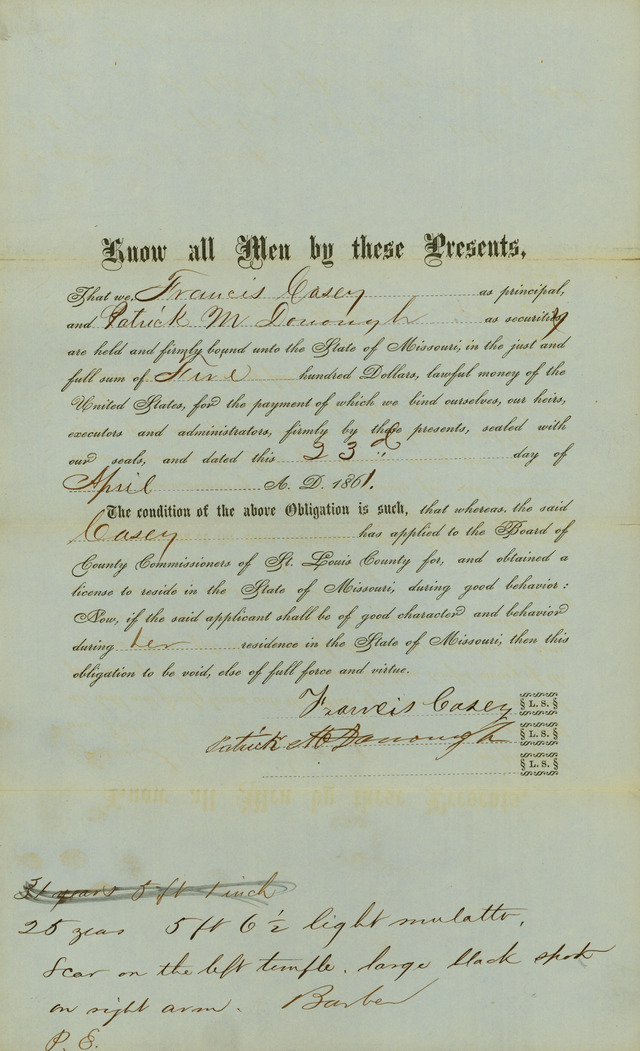 Know all Men by these Presents,
That we, Francis Casey as principal,
and Patrick McDonough as security
are held and firmly bound unto the State of Missouri, in the just and
full sum of Five hundred Dollars, lawful money of the
United States, for the payment of which we bind ourselves, our heirs,
executors and administrators, firmly by these presents, sealed with
our seals, and dated this 23d day of
April A. D. 1861.
The condition of the above Obligation is such, that whereas, the said
Casey has applied to the Board of
County Commissioners of St. Louis County for, and obtained a
license to reside in the State of Missouri, during good behavior:
Now, if the said applicant shall be of good character and behavior
during her residence in the State of Missouri, then this
obligation to be void, else of full force and virtue.
Francis Casey § L. S. §
Patrick McDonough § L. S. §
§ L. S. §
31 years 5 ft 1 inch
25 years 5 ft 6 ½ light mulatto,
Scar on the left temple. large black spot
on right arm. Barber
P. E.